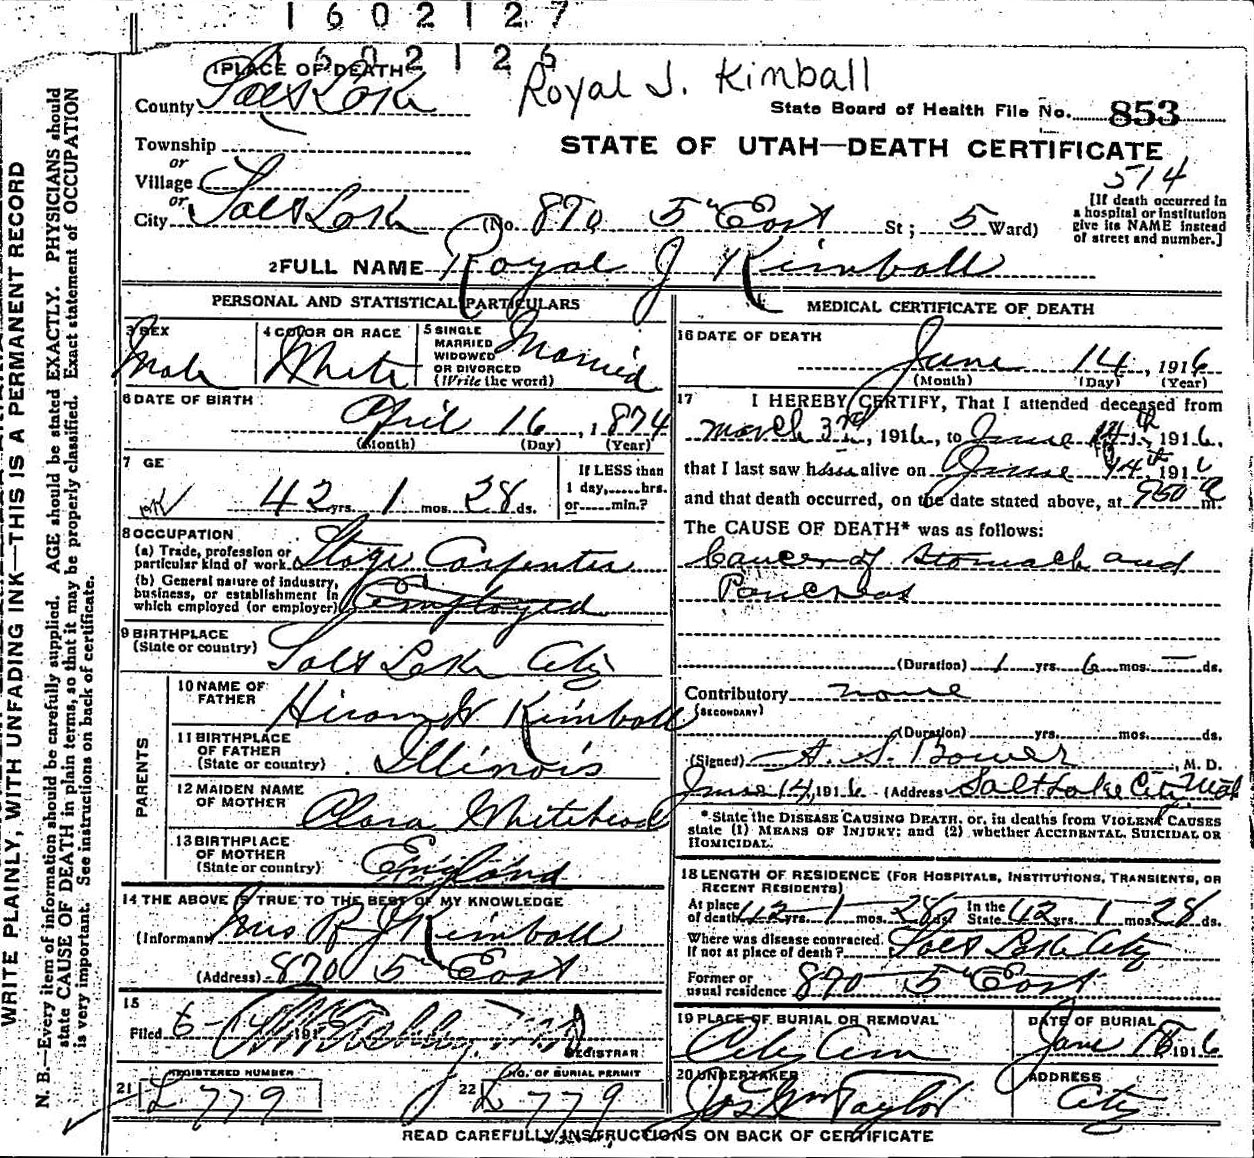 1602127
1602126
Royal J. Kimball
1 PLACE OF DEATH
County Salt Lake
State Board of Health File No. 853
Township
STATE OF UTAH—DEATH CERTIFICATE
or
Village
514
or
City Salt Lake (No. 870 5" East St; 5 Ward)
[If death occurred in
a hospital or institution
give its NAME instead
of street and number.]
2 FULL NAME Royal J Kimball
PERSONAL AND STATISTICAL PARTICULARS
3 SEX
Male
4 COLOR OR RACE
White
5 SINGLE
MARRIED
WIDOWED
OR DIVORCED
(Write the word)
Married
6 DATE OF BIRTH
April 16, 1874
(Month) (Day) (Year)
7 GE
42 yrs. 1 mos. 28 ds.
If LESS than
1 day,......hrs.
or......min.?
8 OCCUPATION
(a) Trade, profession or
particular kind of work Stage Carpenter
(b) General nature of industry,
business, or establishment in
which employed (or employer) Employed
9 BIRTHPLACE
(State or country) Salt Lake City
PARENTS
10 NAME OF
FATHER Hiram H Kimball
11 BIRTHPLACE
OF FATHER
(State or country) Illinois
12 MAIDEN NAME
OF MOTHER Clara Whitehead
13 BIRTHPLACE
OF MOTHER
(State or country) England
14 THE ABOVE IS TRUE TO THE BEST OF MY KNOWLEDGE
(Informant Mrs R J Kimball
(Address) 870 5" East
15
Filed 6-14 191
REGISTRAR
REGISTERED NUMBER
21 L 779
NO. OF BURIAL PERMIT
22 L 779
MEDICAL CERTIFICATE OF DEATH
16 DATE OF DEATH
June 14, 1916
(Month) (Day) (Year)
17 I HEREBY CERTIFY, That I attended deceased from
March 3rd, 1916, to June 14th, 1916,
that I last saw h alive on June 14th 191
and that death occurred, on the date stated above, at 950 m.
The CAUSE OF DEATH* was as follows:
Cancer of Stomach and
Pancreas
(Duration) 1 yrs. 6 mos. — ds.
Contributory none
(SECONDARY)
(Duration) yrs. mos. ds.
(Signed) A. S. Bower, M. D.
June 14, 1916 (Address Salt Lake City Utah
*State the DISEASE CAUSING DEATH, or, in deaths from VIOLENT CAUSES
state (1) MEANS OF INJURY; and (2) whether ACCIDENTAL, SUICIDAL OR
HOMICIDAL.
18 LENGTH OF RESIDENCE (FOR HOSPITALS, INSTITUTIONS, TRANSIENTS, OR
RECENT RESIDENTS)
At place
of death 42 yrs. 1 mos. 28 ds. In the
State 42 yrs. 1 mos. 28 ds.
Where was disease contracted
If not at place of death? Salt Lake City
Former or
usual residence 870 5" East
19 PLACE OF BURIAL OR REMOVAL
City Cem
DATE OF BURIAL
June 1916
20 UNDERTAKER
Jos Wm Taylor
ADDRESS
City
READ CAREFULLY INSTRUCTIONS ON BACK OF CERTIFICATE
WRITE PLAINLY, WITH UNFADING INK—THIS IS A PERMANENT RECORD
N. B.—Every item of information should be carefully supplied. AGE should be stated EXACTLY. PHYSICIANS should
state CAUSE OF DEATH in plain terms, so that it may be properly classified. Exact statement of OCCUPATION
is very important. See instructions on back of certificate.